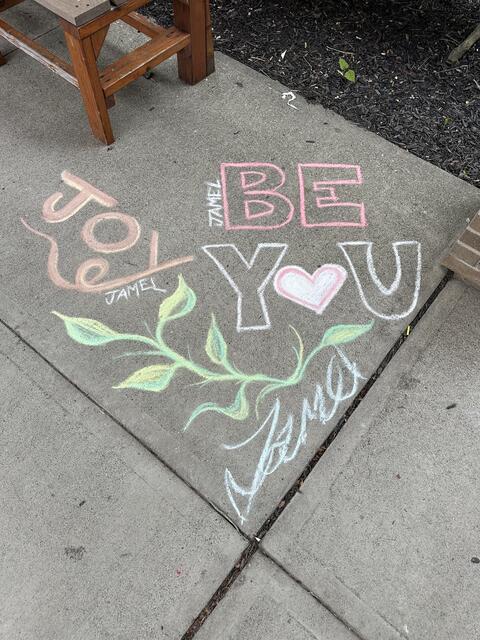 JOY
JAMEL
JAMEL
BE
YOU
Jamel